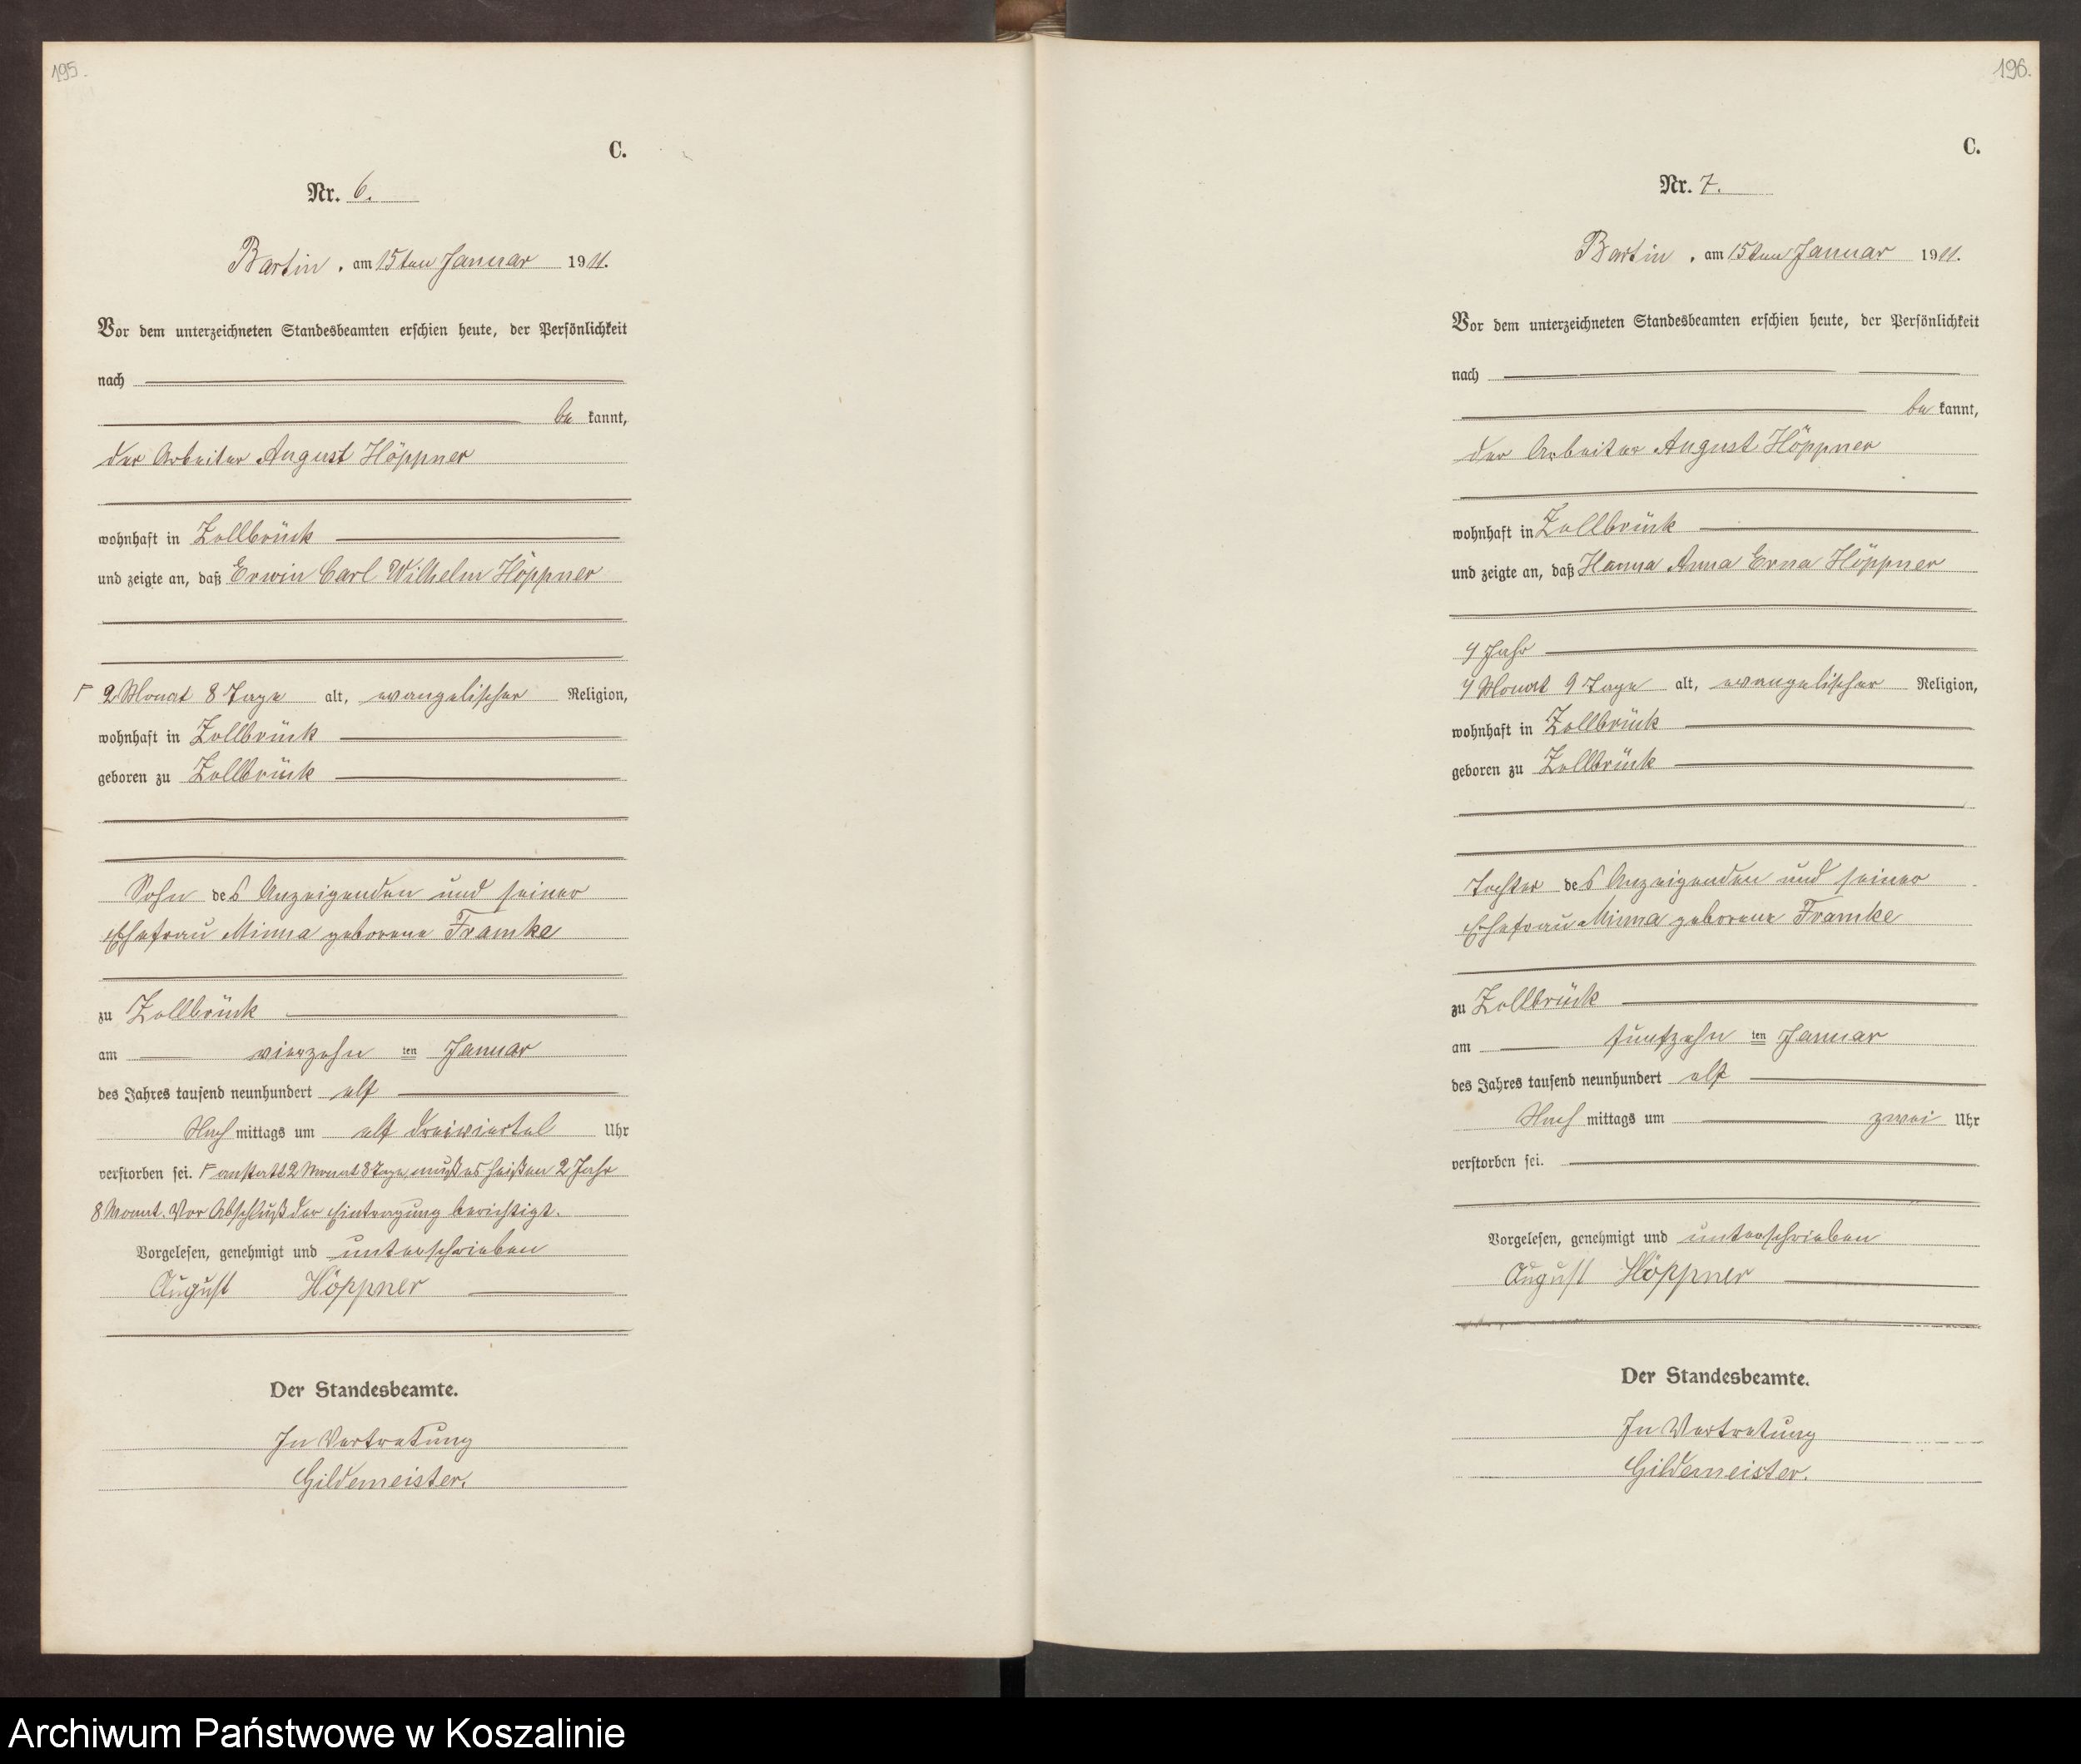 195.
C.
Nr. 6.
Bartin, am 15ten Januar 1911.
Vor dem unterzeichneten Standesbeamten erschien heute, der Persönlichkeit
nach
be kannt,
der Arbeiter August Höppner
wohnhaft in Zollbrück
und zeigte an, daß Erwin Carl Wilhelm Höppner
F 2 Monat 8 Tage alt, evangelischer Religion,
wohnhaft in Zollbrück
geboren zu Zollbrück
Sohn des Anzeigenden und seiner
Ehefrau Minna geborene Framke
zu Zollbrück
am vierzehn ten Januar
des Jahres tausend neunhundert elf
Nach mittags um elf dreiviertel Uhr
verstorben sei. F anstatt 2 Monat 8 Tage muß es heißen 2 Jahr
8 Monat. Vor Abschluß der Eintragung berichtigt.
Vorgelesen, genehmigt und unterschrieben
August Höppner
Der Standesbeamte.
In Vertretung
Gildemeister.
196.
C.
Nr. 7.
Bartin, am 15ten Januar 1911.
Vor dem unterzeichneten Standesbeamten erschien heute, der Persönlichkeit
nach
be kannt,
der Arbeiter August Höppner
wohnhaft in Zollbrück
und zeigte an, daß Hanna Anna Erna Höppner
4 Jahr
4 Monat 9 Tage alt, evangelischer Religion,
wohnhaft in Zollbrück
geboren zu Zollbrück
Tochter des Anzeigenden und seiner
Ehefrau Minna geborene Framke
zu Zollbrück
am fünfzehn ten Januar
des Jahres tausend neunhundert elf
Nach mittags um zwei Uhr
verstorben sei.
Vorgelesen, genehmigt und unterschrieben
August Höppner
Der Standesbeamte.
In Vertretung
Gildemeister.
Archiwum Państwowe w Koszalinie